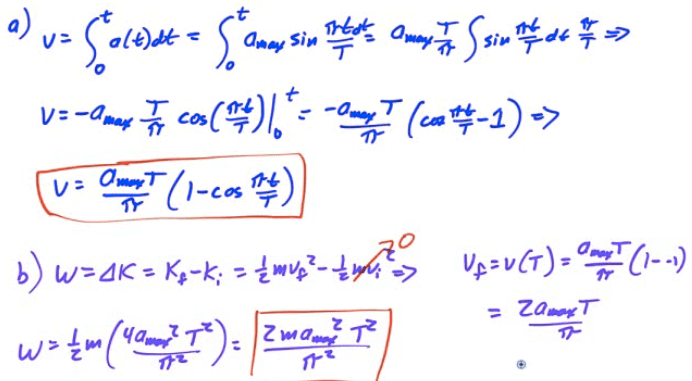 a) v = ∫₀ᵗ a(t)dt = ∫₀ᵗ a_max sin πt/T dt = a_max T/π ∫ sin πt/T dt π/T ⇒
v = -a_max T/π cos(πt/T)|₀ᵗ = -a_max T/π (cos πt/T - 1) ⇒
v = a_max T/π (1 - cos πt/T)
b) W = ΔK = K_f - K_i = 1/2 mv_f² - 1/2 mv_i² ⇒
0
W = 1/2 m (4a_max² T²/π²) = 2ma_max² T²/π²
v_f = v(T) = a_max T/π (1 - -1)
= 2a_max T/π